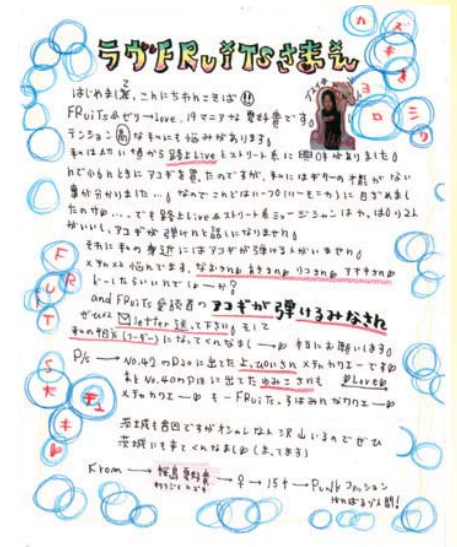 ラヴFRuiTsさまえ
カズキをヨロシク
アコギ
はじめまして、こんにちわんこそば!!
FRuiTs&ゼリ→love、19マニアな 夏好貴です。
テンション高な私にも悩みがあります。
私は幼い頃から路上Liveとストリート系に興味がありました。
んで小6んときにアコギを買ったのですが、私にはギターの才能がない
事が分かりました…。なのでこんどはハープ(ハーモニカ)に目ざめまし
たのサ…。でも路上Live&ストリート系ミュージシャンはやっぱり2人
がいいし、アコギが弾けんと話しになりません。
それに私の身近にはアコギが弾ける人がいません。
メチャメチャ悩んでます。なおきさん あきさん リコさん
どーしたらいいんでしょーか?
and FRuiTs愛読者のアコギが弾けるみなさん
ぜひに letter送って下さい。そして
私の相方(リーダー)になってくんなまし→ 本当にお願いします。
FRuiTs大スキデス
P/s → No.42のP20に出てた よっぴいさん メチャカワエーです
あと No.40のP18に出てた ゆみこさんも Love
メチャカワエー も→FRuiTs、子はみんなカワエー
茨城も田舎ですがオシャレな人沢山いるのでぜひ
茨城にも来てくんなまし(まってます)
From → 夏好貴 → ♀ → 15才 → Punkファッション